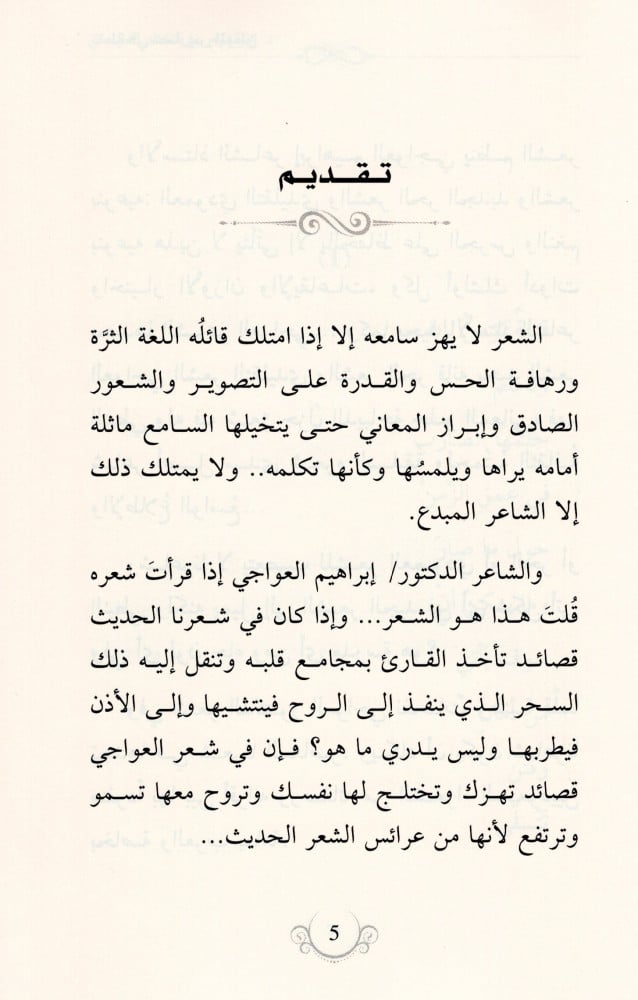 تـقـديـم
الشعر لا يهز سامعه إلا إذا امتلك قائلُه اللغة الثرَّة
ورهافة الحس والقدرة على التصوير والشعور
الصادق وإبراز المعاني حتى يتخيلها السامع ماثلة
أمامه يراها ويلمسُها وكأنها تكلمه.. ولا يمتلك ذلك
إلا الشاعر المبدع.
والشاعر الدكتور/ إبراهيم العواجي إذا قرأتَ شعره
قُلتَ هذا هو الشعر... وإذا كان في شعرنا الحديث
قصائد تأخذ القارئ بمجامع قلبه وتنقل إليه ذلك
السحر الذي ينفذ إلى الروح فينتشيها وإلى الأذن
فيطربها وليس يدري ما هو؟ فإن في شعر العواجي
قصائد تهزك وتختلج لها نفسك وتروح معها تسمو
وترتفع لأنها من عرائس الشعر الحديث...
5